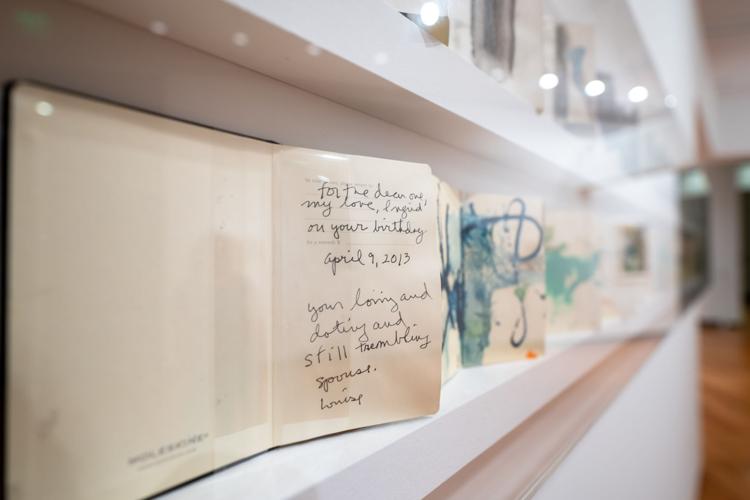 for the dear one,
my love, Ingrid
on your birthday
april 9, 2013
your loving and
doting and
still trembling
spouse.
Louise
MOLESKINE®